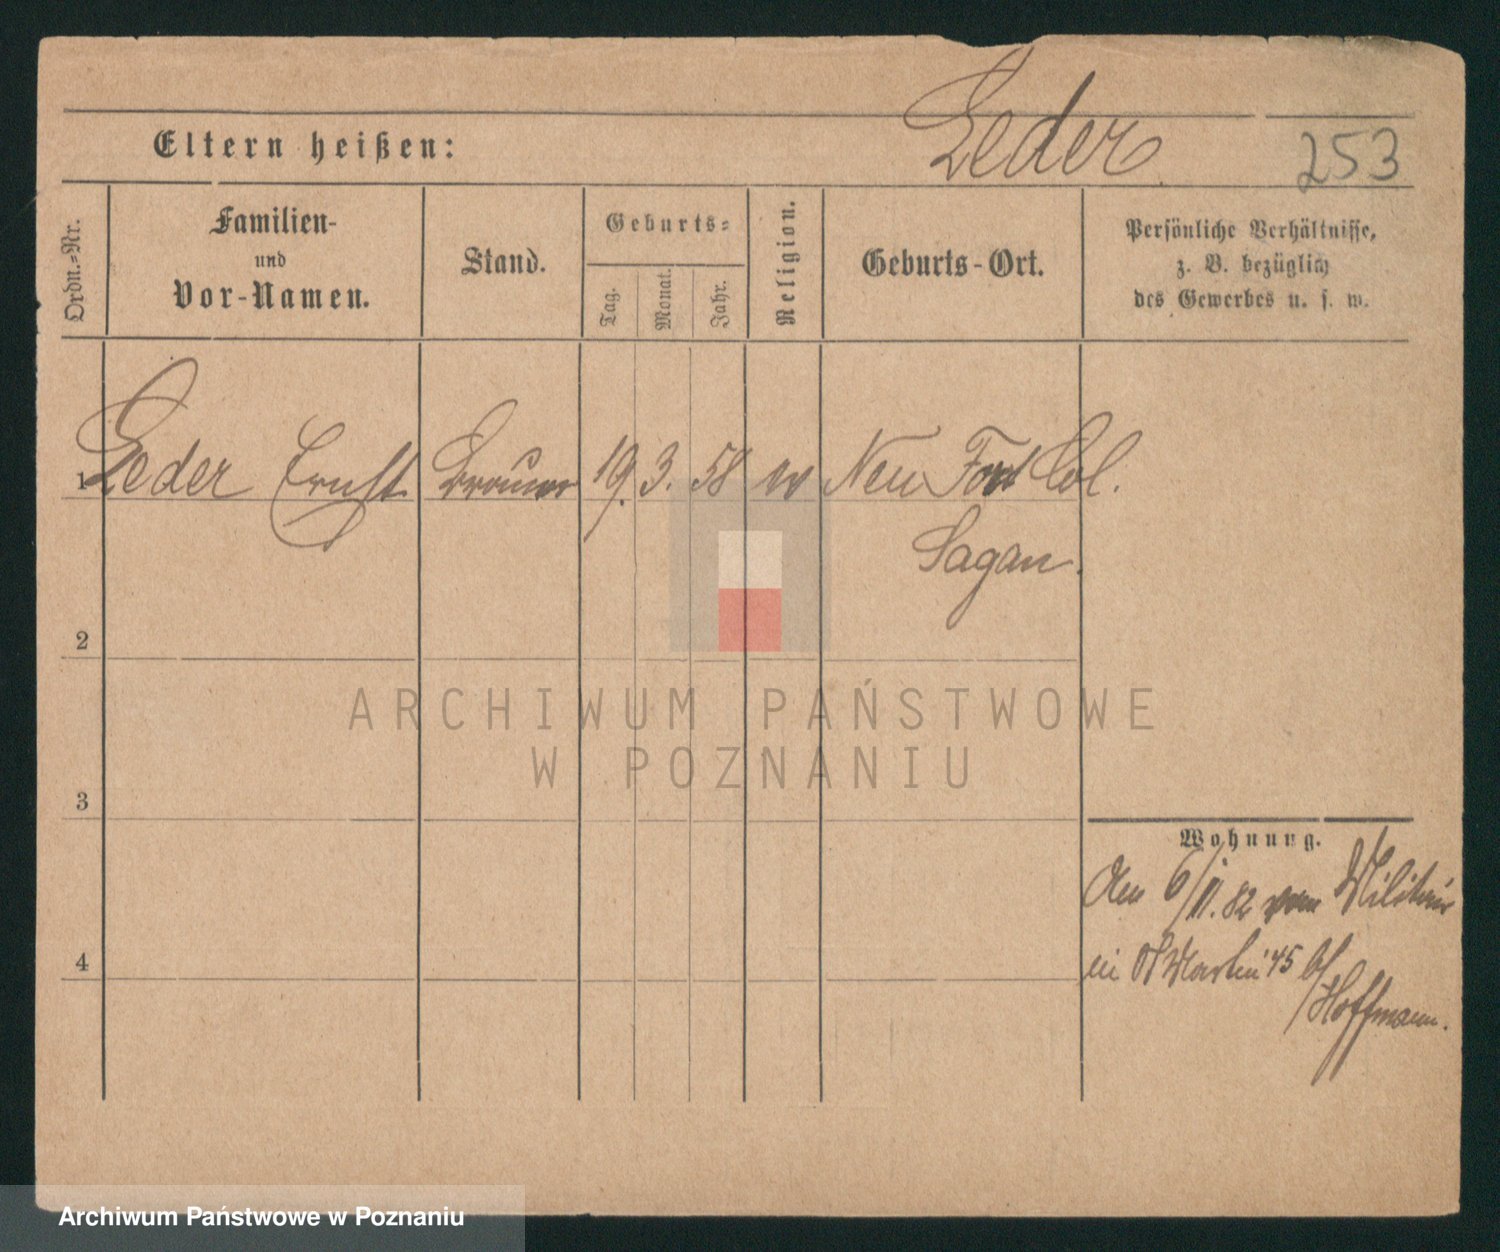 Leder
Eltern heißen:
253
Ordn.-Nr.
Familien-
und
Vor-Namen.
Stand.
Geburts-
Tag.
Monat.
Jahr.
Religion.
Geburts-Ort.
Persönliche Verhältnisse,
z. B. bezüglich
des Gewerbes u. s. w.
1 Leder Ernst Brauer 19. 3. 58 Neu Forst Col.
Sagan.
2
3
4
Wohnung.
Am 6/II. 82 vom Militair
in St Martin 45 b/
Hoffmann.
ARCHIWUM PAŃSTWOWE
W POZNANIU
Archiwum Państwowe w Poznaniu